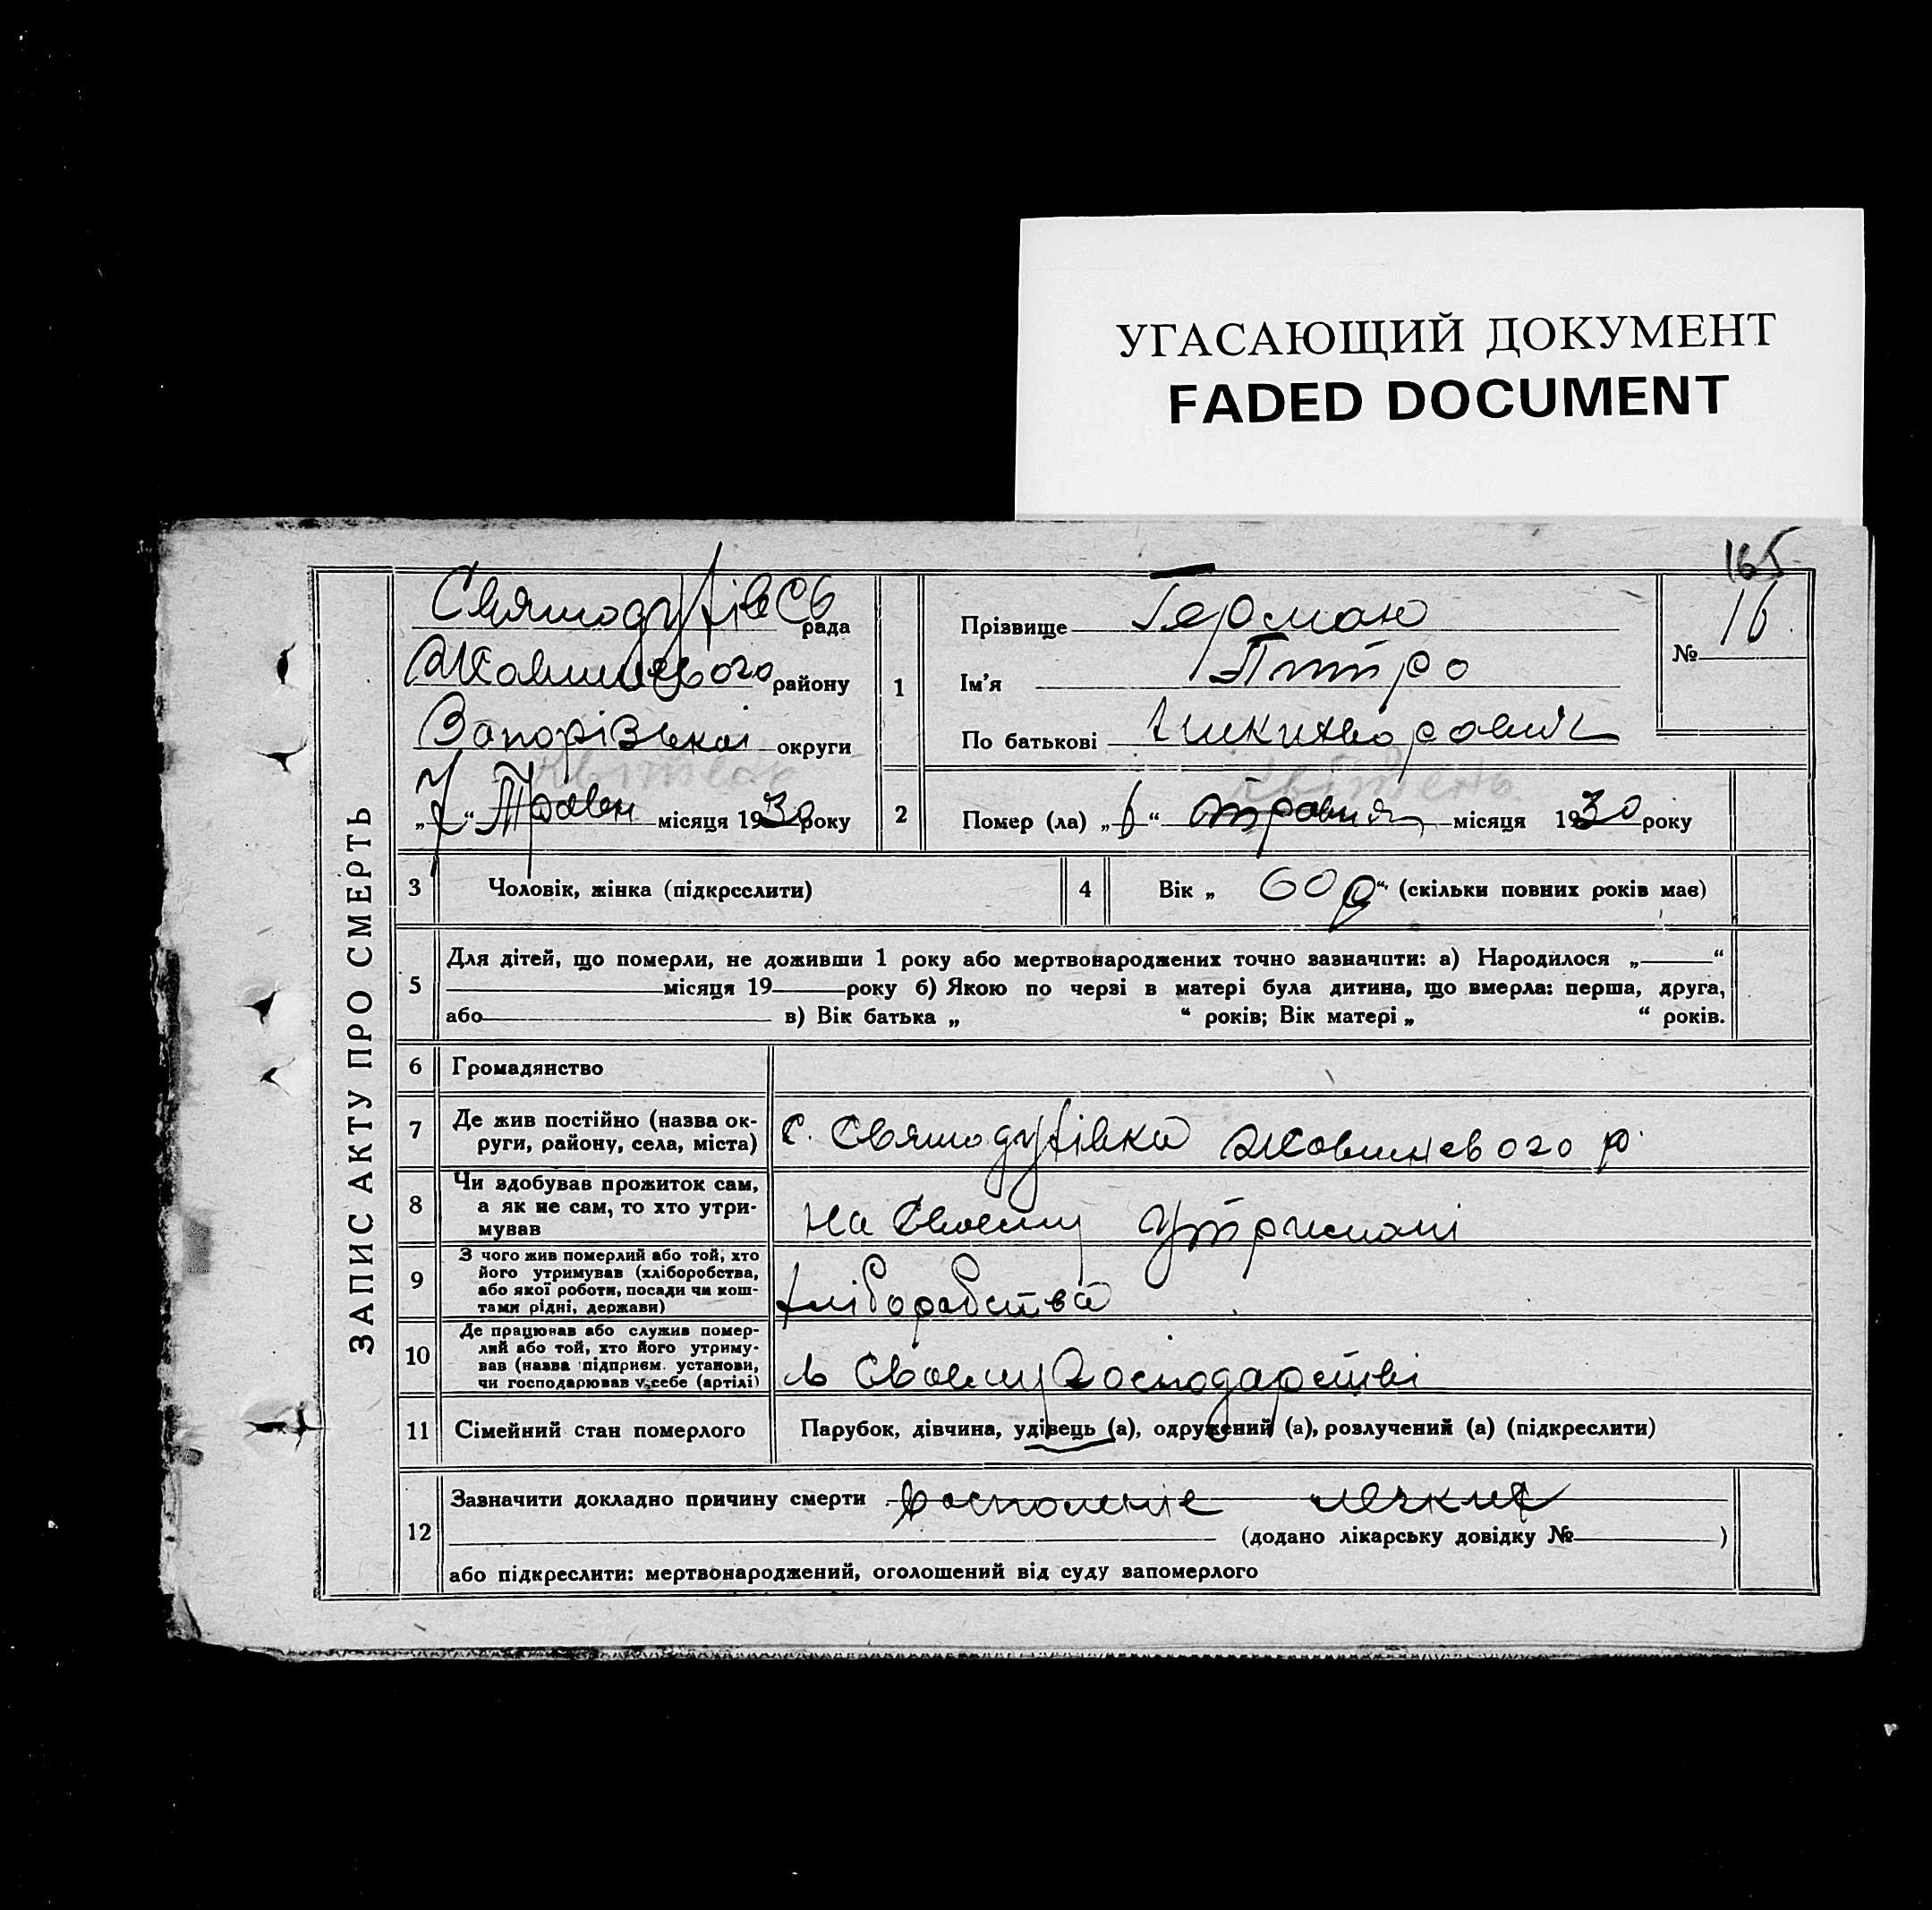 УГАСАЮЩИЙ ДОКУМЕНТ
FADED DOCUMENT
165
ЗАПИС АКТУ ПРО СМЕРТЬ
Святодухівсь рада
Жовтневого району
Запорізької округи
квітень
„7“ Травн місяця 1930 року
1
Прізвище Герман
Ім’я Питро
По батькові Никихворович
№ 16
2
квітень
Помер (ла) „6“ травня місяця 1930 року
3 Чоловік, жінка (підкреслити)
4 Вік „ 60 р “ (скільки повних років має)
5
Для дітей, що померли, не доживши 1 року або мертвонароджених точно зазначити: а) Народилося „ “
місяця 19 року б) Якою по черзі в матері була дитина, що вмерла: перша, друга,
або в) Вік батька „ “ років; Вік матері „ “ років.
6 Громадянство
7
Де жив постійно (назва ок-
руги, району, села, міста)
с. Святодухівка Жовтневого р.
8
Чи здобував прожиток сам,
а як не сам, то хто утри-
мував
на своему утримані
9
З чого жив померлий або той, хто
його утримував (хліборобства,
або якої роботи, посади чи кош-
тами рідні, держави)
хліборобства
10
Де працював або служив помер-
лий або той, хто його утриму-
вав (назва підприєм. установи,
чи господарював у себе (артілі)
в своему господарстві
11 Сімейний стан померлого
Парубок, дівчина, удівець (а), одружений (а), розлучений (а) (підкреслити)
12
Зазначити докладно причину смерти восполение легких
(додано лікарську довідку № )
або підкреслити: мертвонароджений, оголошений від суду запомерлого